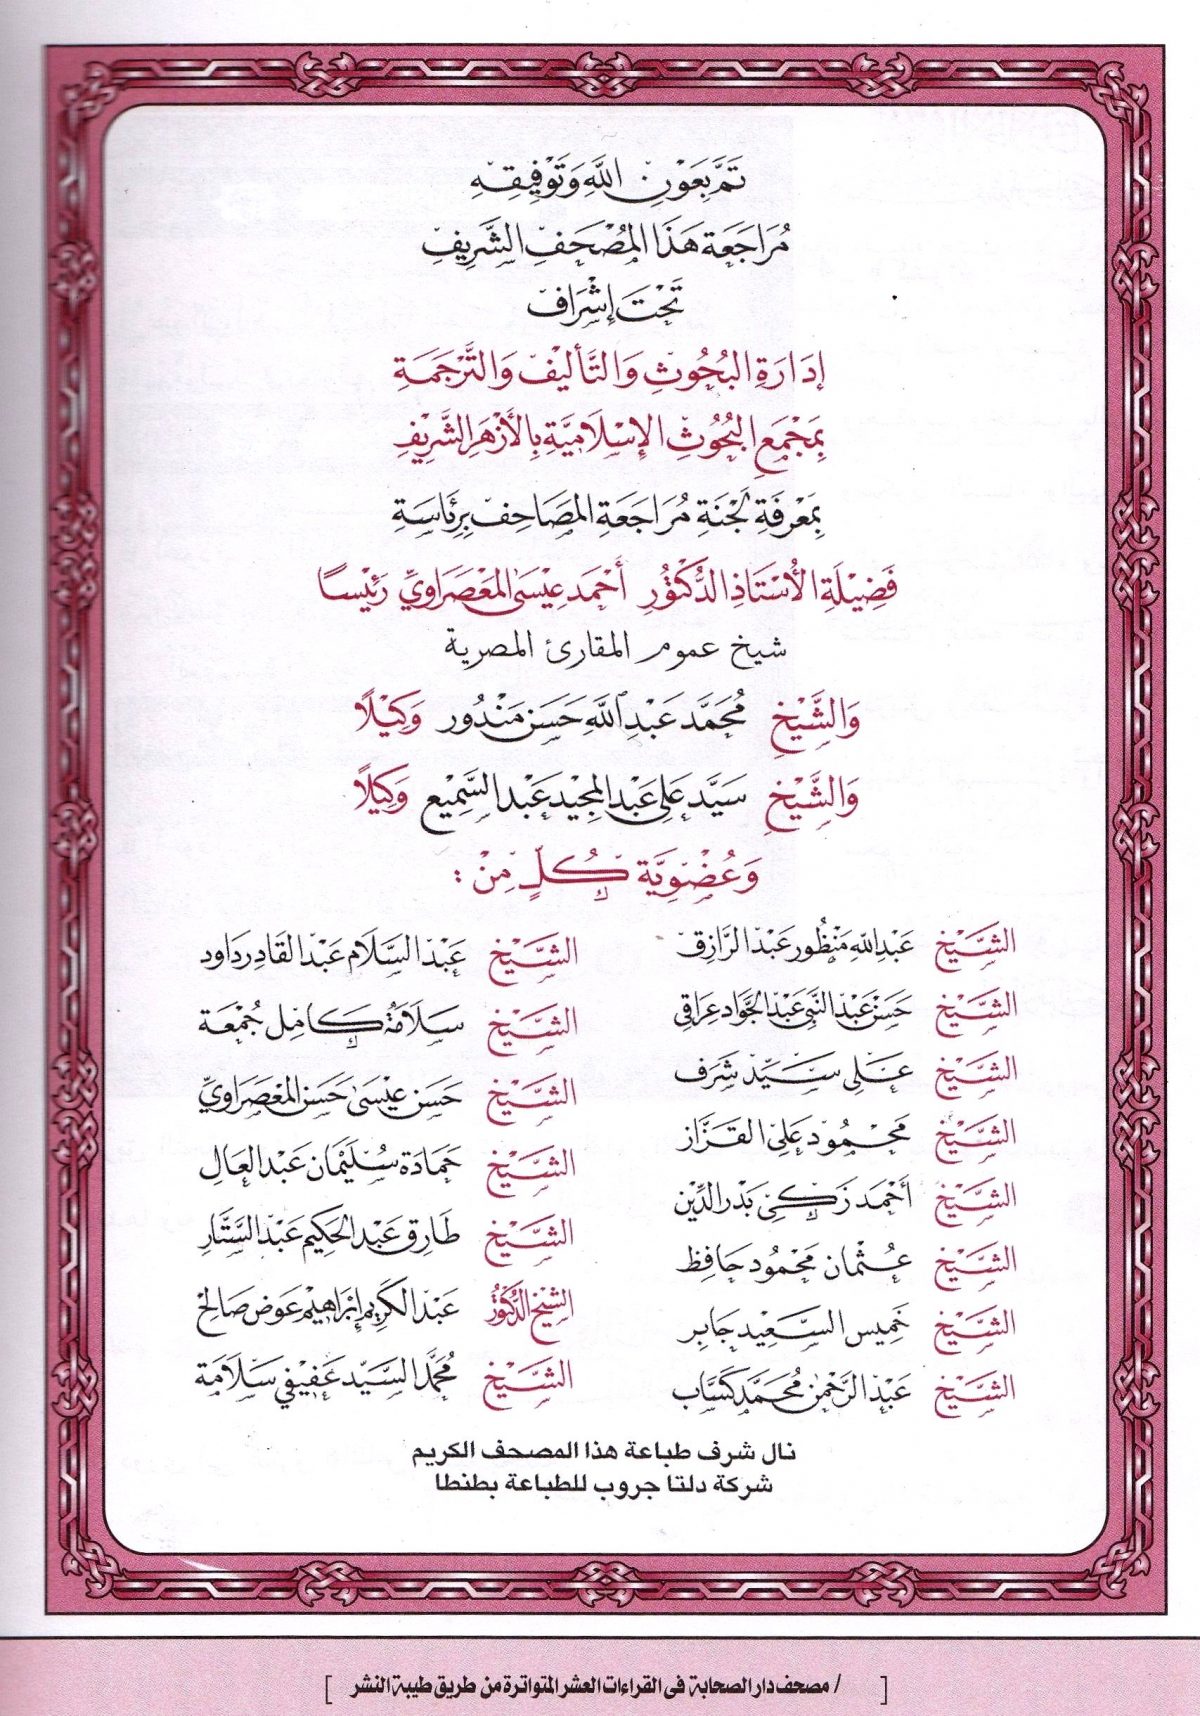 تَمَّ بِعَوْنِ اللَّهِ وَتَوْفِيقِهِ
مُرَاجَعَة هَذَا المُصْحَفِ الشَّرِيفِ
تَحْتَ إِشْرَاف
إِدَارَةِ البُحُوثِ وَالتَّأْلِيفِ وَالتَّرْجَمَةِ
بِمَجْمَعِ البُحُوثِ الإِسْلَامِيَّةِ بِالأَزْهَرِ الشَّرِيفِ
بِمَعْرِفَةِ لَجْنَةِ مُرَاجَعَةِ المَصَاحِفِ بِرِئَاسَةِ
فَضِيْلَةِ الأُسْتَاذِ الدُّكْتُورِ أَحْمَد عِيْسَى المَعْصَرَاوِيِّ رَئِيْسًا
شيخ عموم المقارئ المصرية
وَالشَّيْخِ مُحَمَّد عَبْدِ اللَّهِ حَسَن مَنْدُور وَكِيْلًا
وَالشَّيْخِ سَيَّد عَلِي عَبْد المَجِيْد عَبْد السَّمِيْع وَكِيْلًا
وَعُضْوِيَّة كُلٍّ مِنْ :
الشَّيْخ عَبْدِ اللَّهِ مَنْظُور عَبْد الرَّازِق
الشَّيْخ حَسَن عَبْد النَّبِي عَبْد الجَوَاد عِرَاقِي
الشَّيْخ عَلِي سَيِّد شَرَف
الشَّيْخ مَحْمُود عَلِي القَزَّاز
الشَّيْخ أَحْمَد زَكِي بَدْر الدِّيْن
الشَّيْخ عُثْمَان مَحْمُود حَافِظ
الشَّيْخ خَمِيس السَّعِيد جَابِر
الشَّيْخ عَبْد الرَّحْمٰن مُحَمَّد كَسَّاب
الشَّيْخ عَبْد السَّلَام عَبْد القَادِر دَاود
الشَّيْخ سَلَامَة كَامِل جُمْعَة
الشَّيْخ حَسَن عِيْسَى حَسَن المَعْصَرَاوِيّ
الشَّيْخ حَمَادَة سُلَيْمَان عَبْد العَال
الشَّيْخ طَارِق عَبْد الحَكِيْم عَبْد السَّتَّار
الشَّيْخ الدُّكْتُور عَبْد الكَرِيْم إِبْرَاهِيْم عَوَض صَالِح
الشَّيْخ مُحَمَّد السَّيِّد عَفِيْفِي سَلَامَة
نال شرف طباعة هذا المصحف الكريم
شركة دلتا جروب للطباعة بطنطا
[ / مصحف دار الصحابة فى القراءات العشر المتواترة من طريق طيبة النشر ]